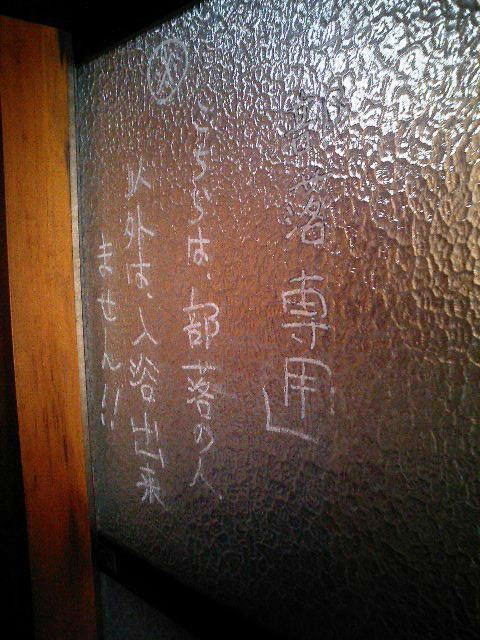 部落専用」
こちらは、部落の人
以外は、入浴出来
ません!!